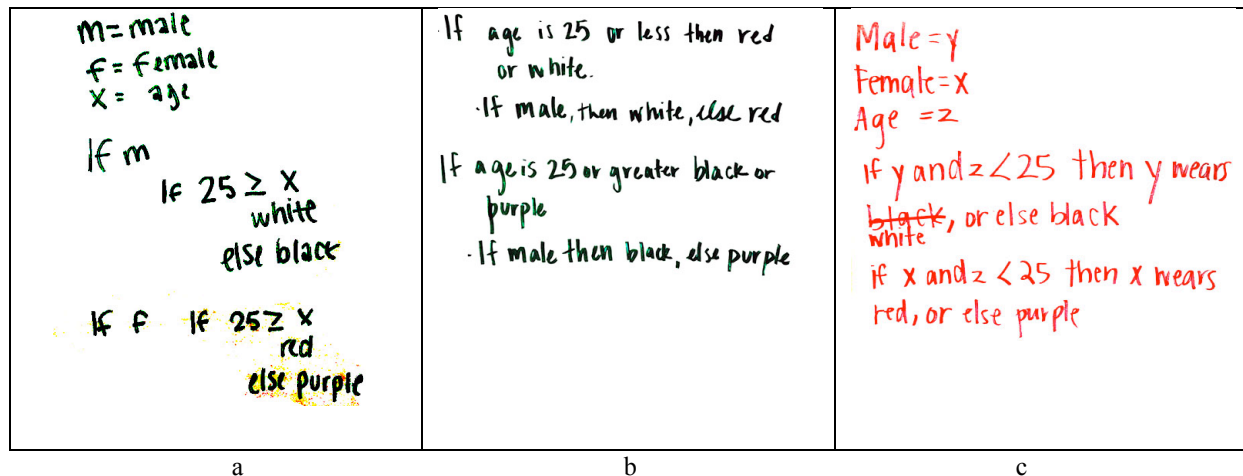 m = male
f = female
x = age
If m
If 25 ≥ x
white
else black
If f If 25 ≥ x
red
else purple
a
· If age is 25 or less then red
or white.
· If male, then white, else red
If age is 25 or greater black or
purple
· If male then black, else purple
b
Male = y
Female = x
Age = z
if y and z < 25 then y wears
black, or else black
white
if x and z < 25 then x wears
red, or else purple
c